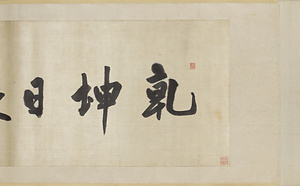 乾坤日